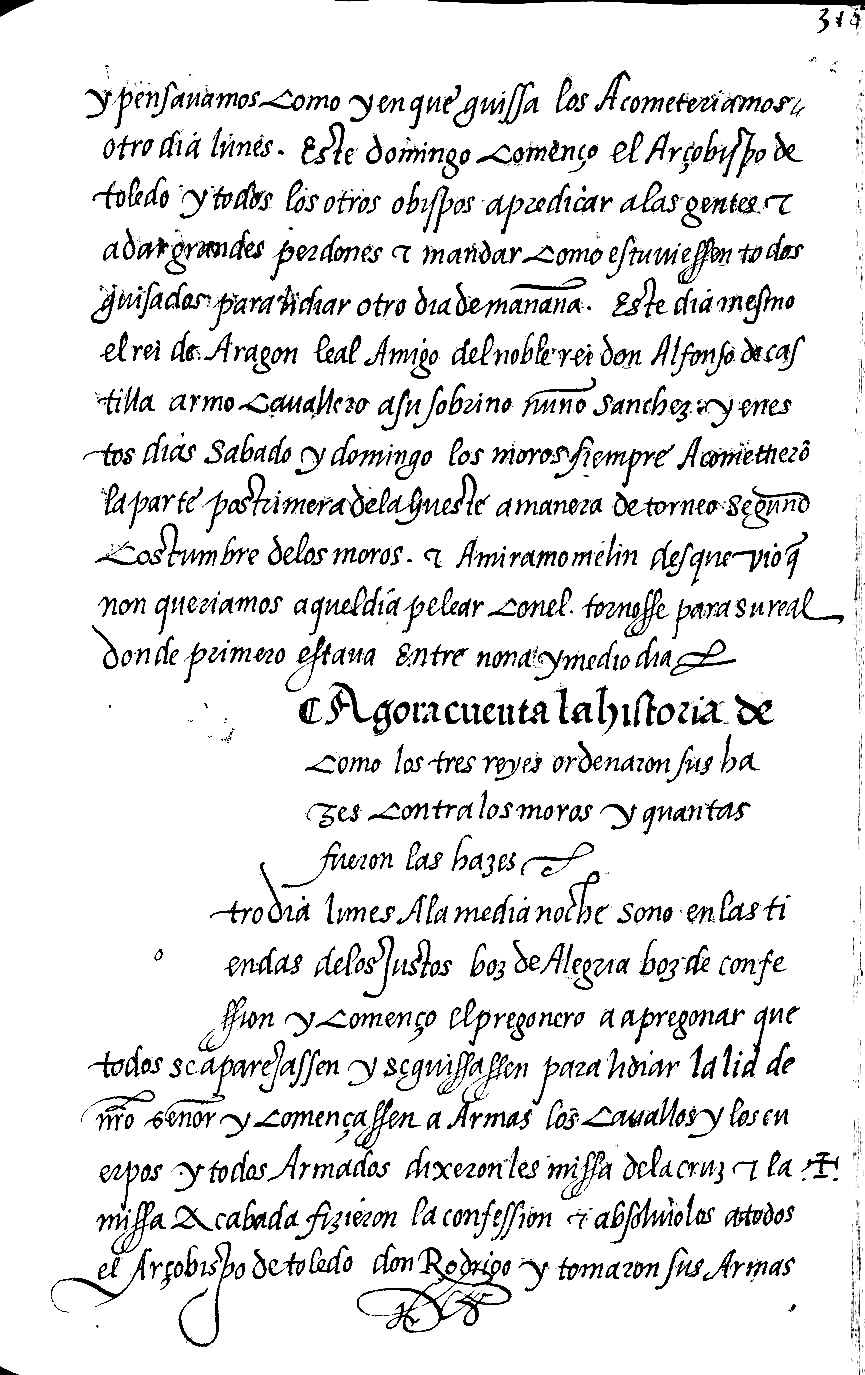 315
y pensauamos como y en que guissa los Acometeriamos
otro dia lunes. Este domingo començo el Arçobispo de
toledo y todos los otros obispos a predicar a las gentes &
a dar grandes perdones & mandar como estuuiessen todos
guisados para lidiar otro dia de mañana. Este dia mesmo
el rei de Aragon leal Amigo del noble rei don Alfonso de cas
tilla armo cauallero a su sobrino nuño sanchez. y en es
tos dias sabado y domingo los moros siempre Acometierō
la parte postrimera de la hueste a manera de torneo segund
costumbre de los moros. & Amiramomelin desque vio q̄
non queriamos aquel dia pelear con el. tornosse para su real
donde primero estaua Entre nona y medio dia
¶ Agora cuenta la historia de
como los tres reyes ordenaron sus ha
zes contra los moros y quantas
fueron las hazes
tro dia lunes A la media noche sono en las ti
endas de los Justos boz de Alegria boz de confe
ssion y començo el pregonero a apregonar que
todos se aparejassen y se guissassen para lidiar la lid de
nr̄o señor y començassen a Armas los cauallos y los cu
erpos y todos Armados dixeron les missa de la cruz & la ✠
missa Acabada fizieron la confession & absoluiolos a todos
el Arçobispo de toledo don Rodrigo y tomaron sus Armas